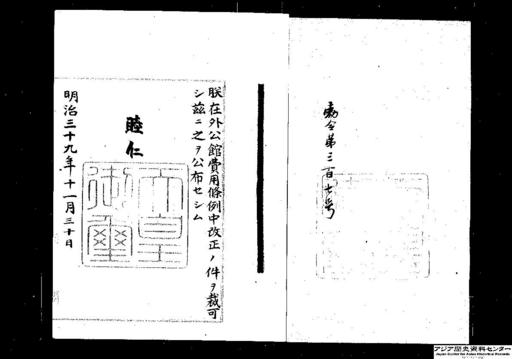 勅令第三百七号
朕在外公館費用條例中改正ノ件ヲ裁可
シ茲ニ之ヲ公布セシム
睦仁
天皇御璽
明治三十九年十一月三十日
アジア歴史資料センター
Japan Center for Asian Historical Records